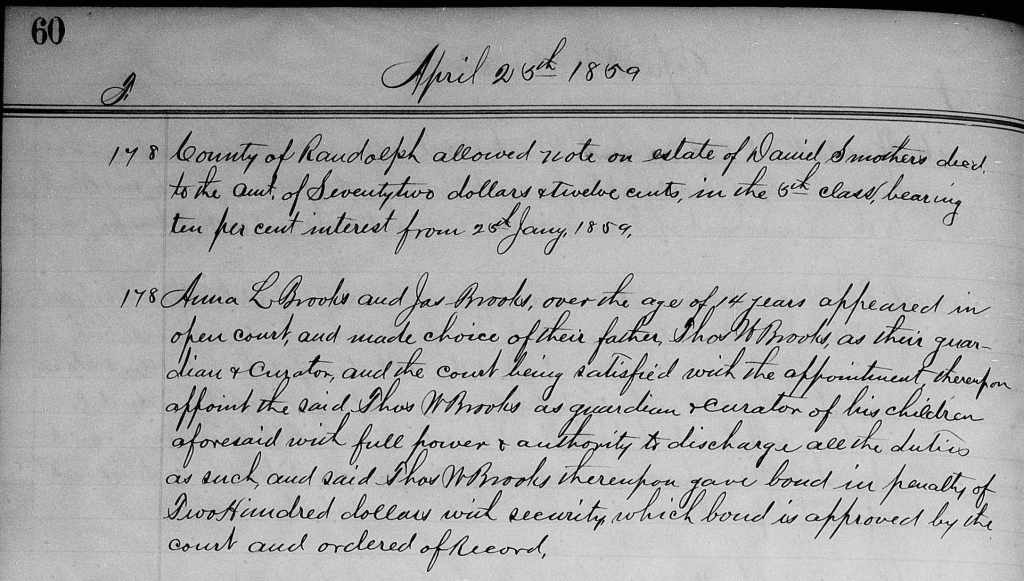 60
April 25th 1859
P.
178 County of Randolph allowed note on estate of Daniel Smothers decd.
to the amt. of Seventytwo dollars & twelve cents, in the 5th class, bearing
ten per cent interest from 25th Jany. 1859.
178 Anna L Brooks and Jas Brooks, over the age of 14 years appeared in
open court, and made choice of their father, Thos W Brooks, as their guar-
dian & Curator, and the court being satisfied with the appointment, thereupon
appoint the said Thos W Brooks as guardian & curator of his children
aforesaid with full power & authority to discharge all the duties
as such, and said Thos W Brooks thereupon gave bond in penalty of
Two Hundred dollars with security, which bond is approved by the
court and ordered of Record.